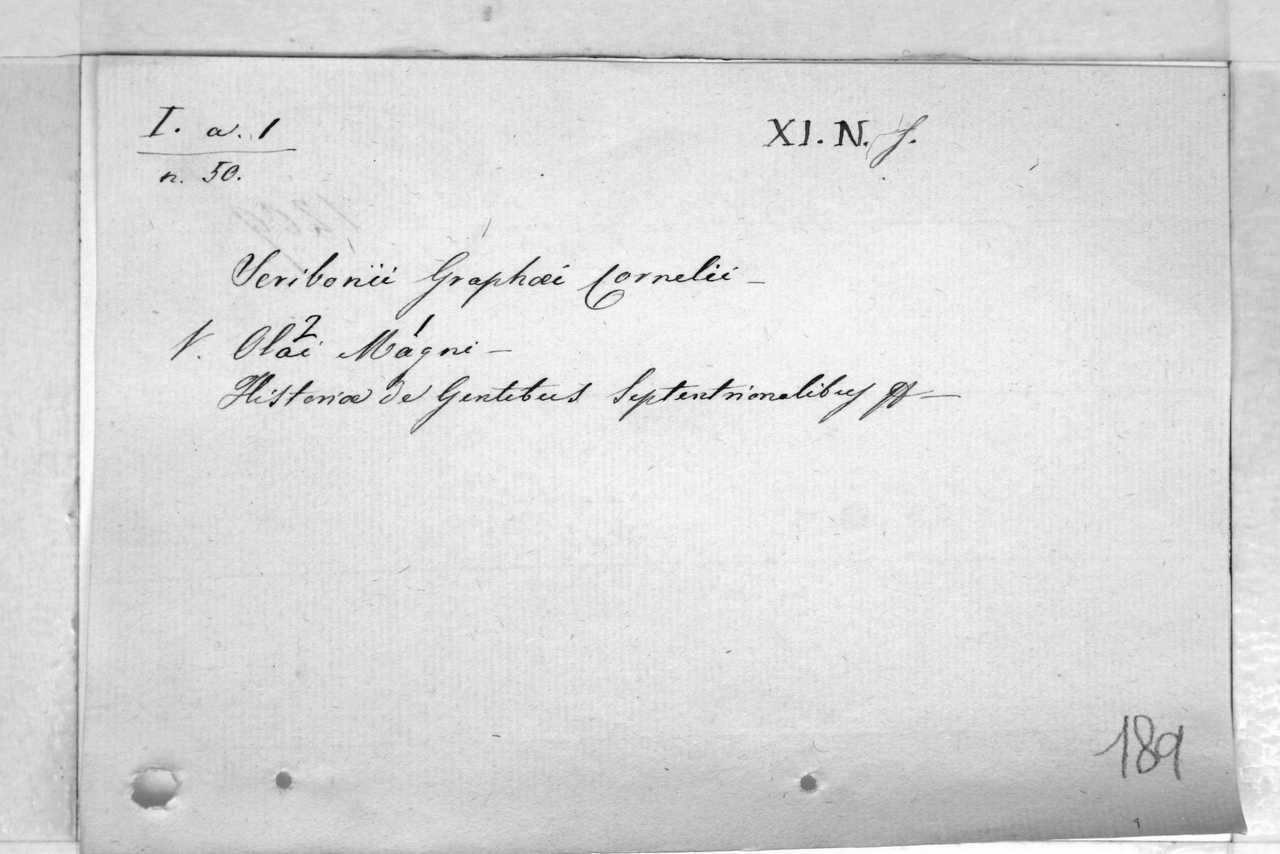 I. a. 1
n. 50.
XI. N. f.
Scribonii Graphæi Cornelii —
V. Olai 2 Magni 1 —
Historiæ de Gentibus Septentrionalibus
189